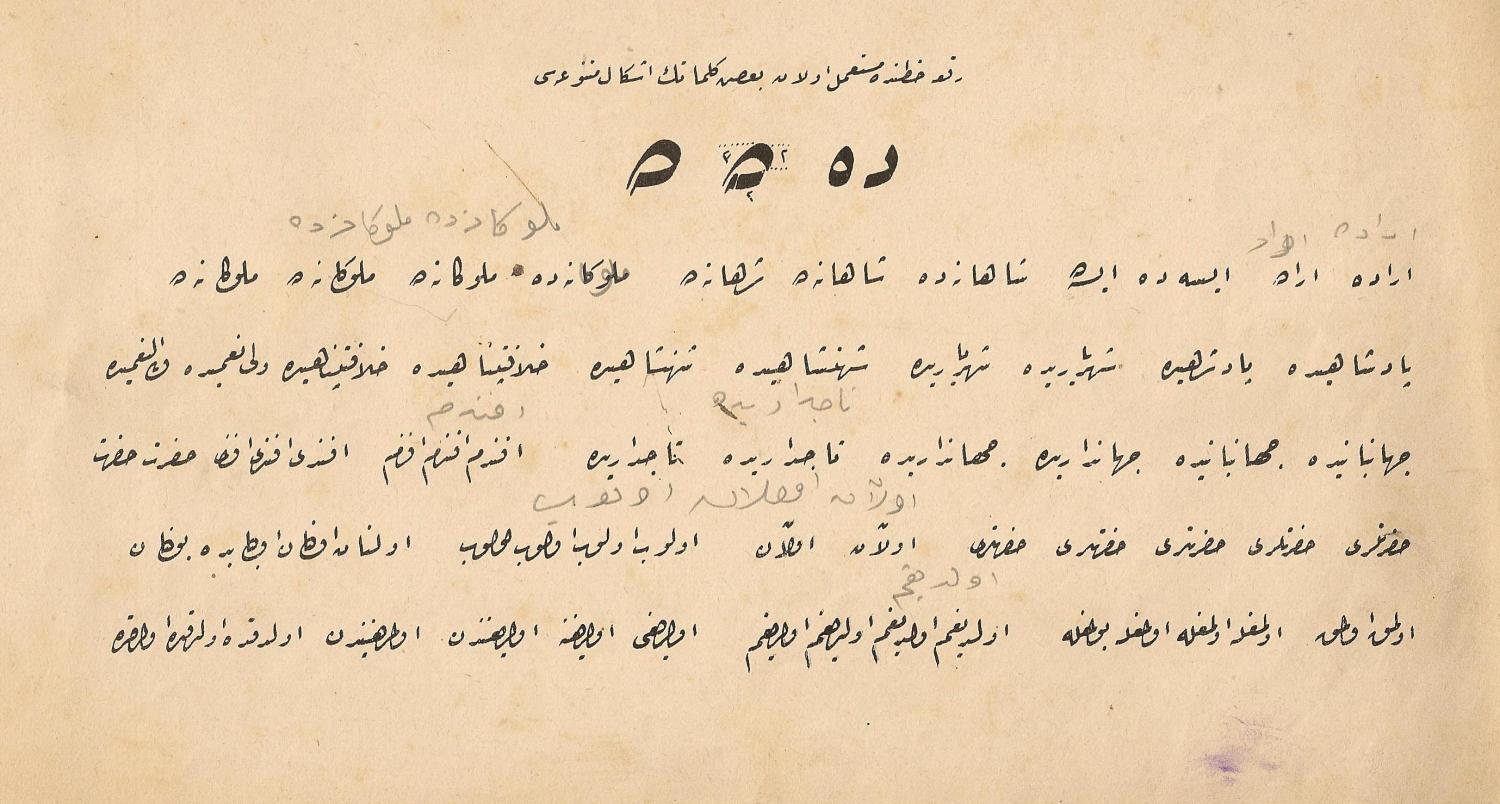 رقعه خطنده مستعمل اولان بعض كلماتك اشكال متنوعه‌سى
ده ده ده
ملوكانه‌ده ملوكانه‌ده
اراده اراده
اراده اراده ايسه‌ده ايسه‌ده شاهانه‌ده شاهانه‌ده شاهانه‌ده ملوكانه‌ده ملوكانه‌ده ملوكانه‌ده ملوكانه‌ده
پادشاهيده پادشاهيده شهرياريده شهرياريده شهنشاهيده شهنشاهيده خلافتپناهيده خلافتپناهيده ولى‌النعميده ولى‌النعميده
تاجداريده افندم
جهانبانيده جهانبانيده جهانداريده جهانداريده تاجداريده تاجداريده افندم افندم افندم افندى افندى افندى حضرت حضرت
اولان اولان اولوب
حضرتلرى حضرتلرى حضرتلرى حضرتلرى حضرتلرى اولان اولان اولوب اولوب اولوب اولنان
اولديغم
اولمق اولمق اولمغله اولمغله اولمغله بولمغله اولديغم اولديغم اولديغم اولديغم اولديغى اولديغنه اولديغندن اولديغندن اولدقده اولدقده اولدقده